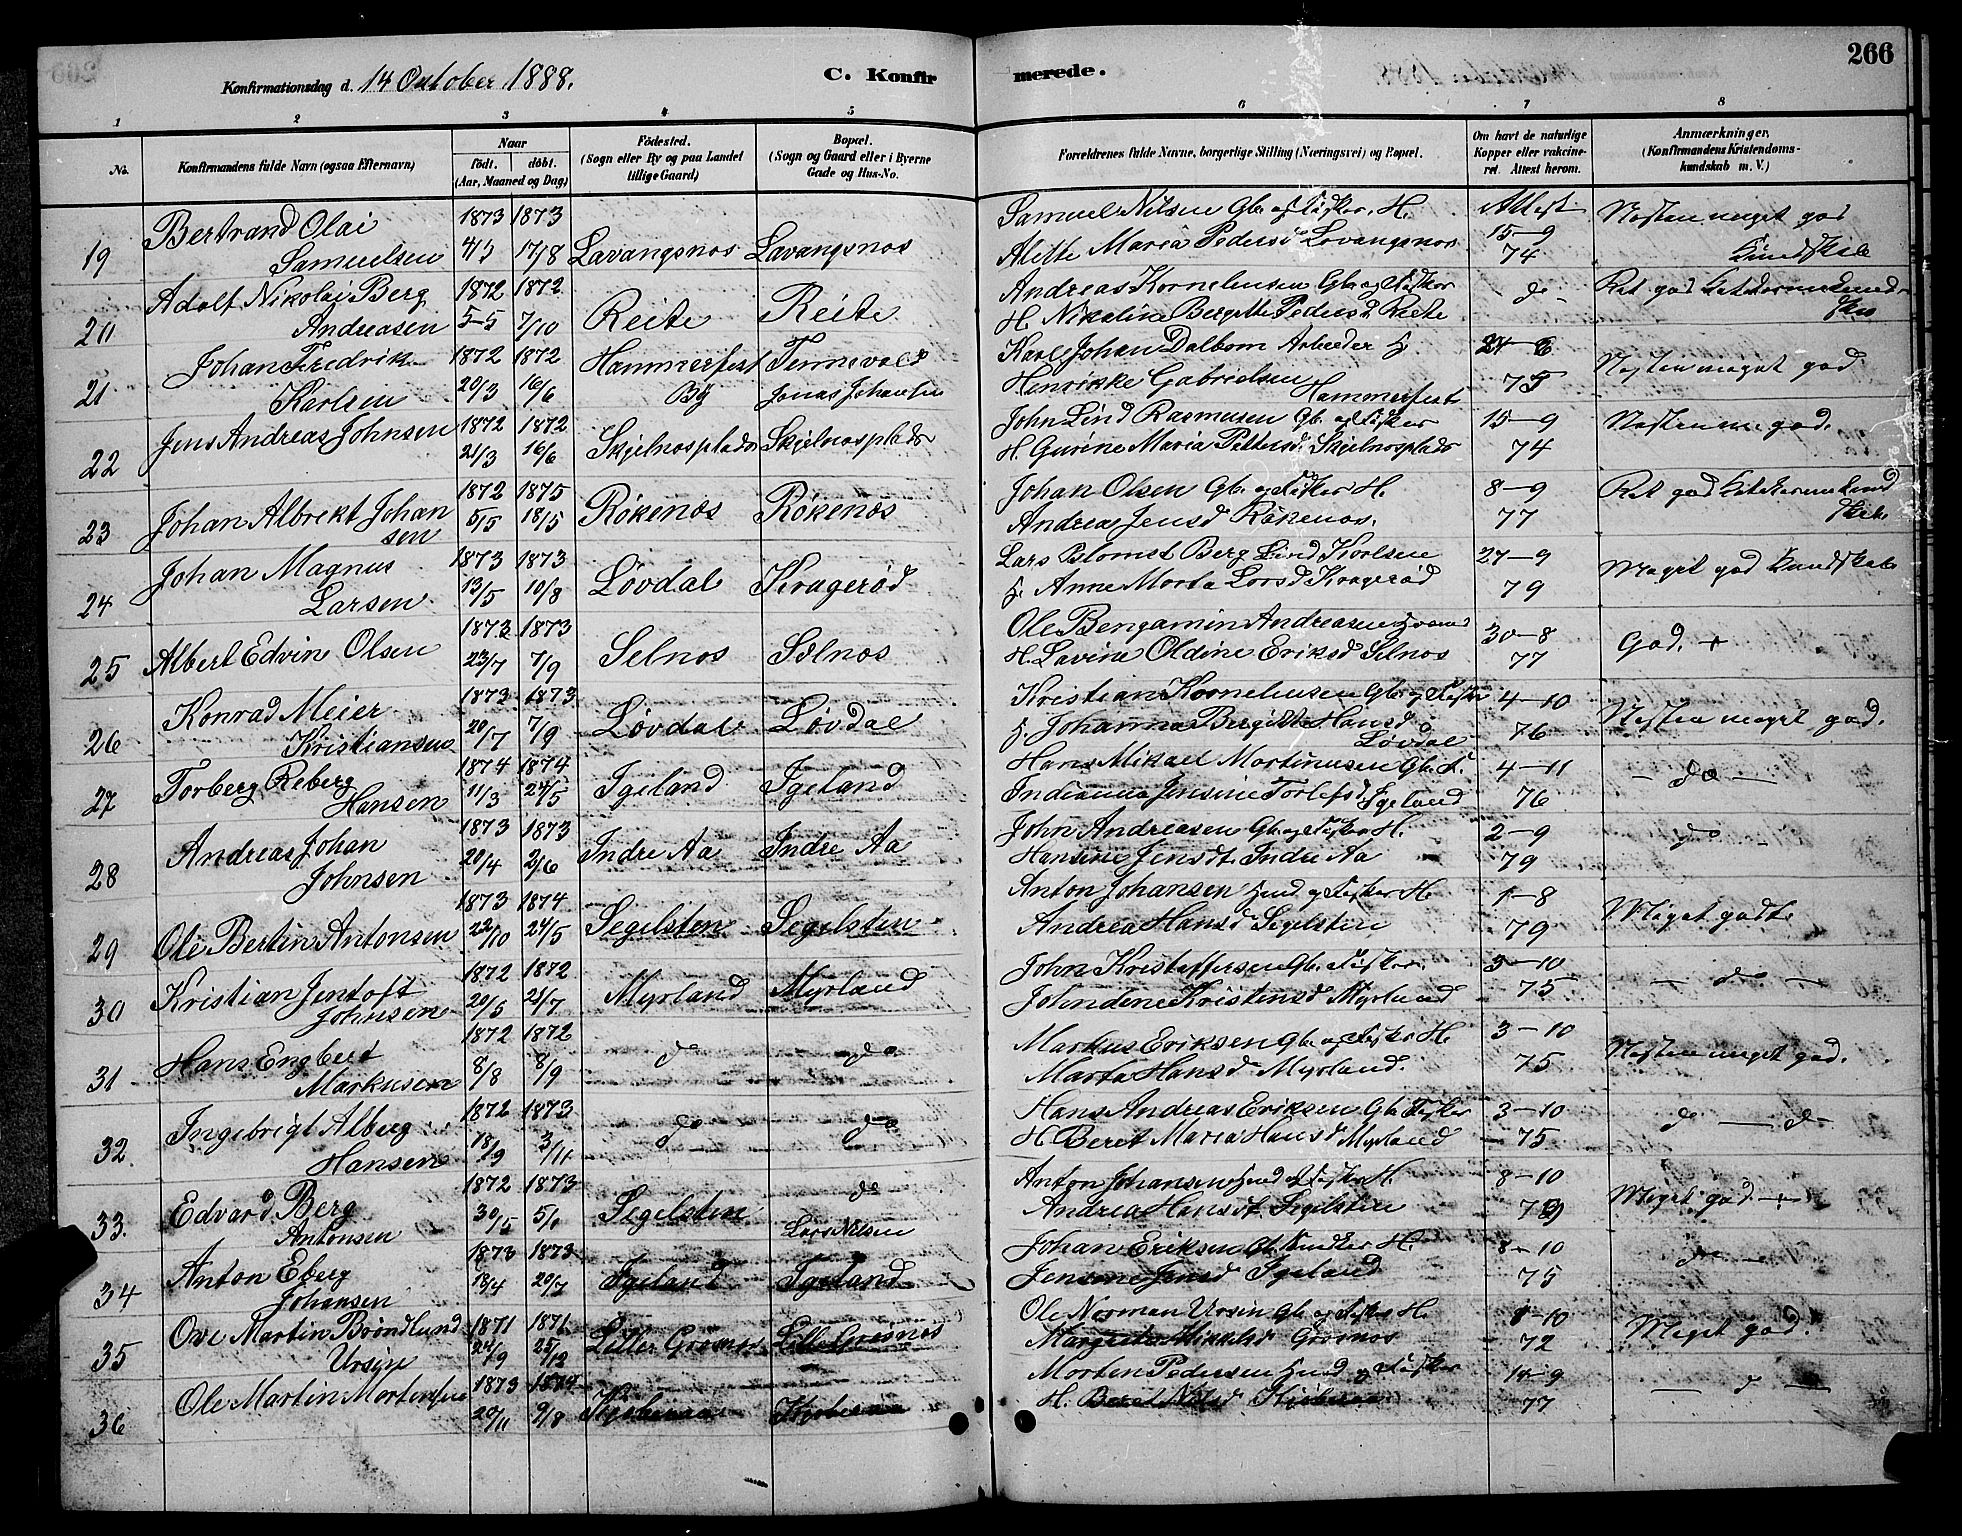 266
Konfirmationsdag d. 14 October 1888.
C. Konfir
merede.
1 2 3 4 5 6 7 8
No.
Konfirmandens fulde Navn (ogsaa Efternavn)
Naar
født. døbt.
(Aar, Maaned og Dag)
Födested.
(Sogn eller By og paa Landet
tillige Gaard)
Bopæl.
(Sogn og Gaard eller i Byerne
Gade og Hus-No.
Forældrenes fulde Navne, borgerlige Stilling (Næringsvei) og Bopæl.
Om havt de naturlige
Kopper eller vakcine-
ret. Attest herom.
Anmærkninger,
(Konfirmandens Kristendoms-
kundskab m. V.)
Bertrand Olai 1873 1873 Samuel Nilsen Gb. og Fisker. H. Attest Næsten meget god
19 Samuelsen 17/8 Lavangsnos Lavangsnos Alette Maria Pedersd Lavangsnos 15-9 74 Kundskab
Adolf Nikolai Berg 1872 1872 Andreas Kornelius­en Gb. og Fisker
20 Andreasen 5-5 7/10 Reite Reite H. Nikoline Bergitte Pedersd Reite do
Johan Fredrik 1872 1872 Hammerfest Karl Johan Dalbom Arbeider
21 Karlsen 20/3 16/6 By Jonas Johansen Henrikke Gabrielsen Hammerfest 75 Næsten meget god
Jens Andreas Johnsen 1872 1872 John Lind Rasmusen Gb. og Fisker 15-9
22 21/3 16/6 Skjelnosplads Skjelnosplads H. Gurine Maria Pettersd. Skjelnosplads 74
Johan Albrekt Johan 1872 1875 Johan Olsen Gb. og Fisker H. 8-9
23 sen 5/5 18/5 Røkenos Røkenos Andrea Jensd Røkenos. 77
Johan Magnus 1873 1873 Lars Blomst Berg Lind Karlsen 27-9 Meget god Kundskab
24 Larsen 13/5 10/8 Løvdal Kragerød H. Anne Marta Larsd Kragerød 79
1873 1873 Ole Bengamin Andreasen 30-8
25 Albert Edvin Olsen 23/7 7/9 Selnos Selnos H. Lavine Oldine Eriksd Selnos 77 God. +
Konrad Meier 1873 1873 Kristian Korneliusen Gb. og Fisker 4-10
26 Kristiansen 20/7 7/9 Løvdal Løvdal H. Johanna Bergitta Hansd Løvdal 76 Næsten meget god.
Torberg Reberg 1874 1874 Hans Mikael Martinusen Gb. F. 4-11
27 Hansen 11/3 24/5 Igeland Igeland Indianna Jensine Torlefsd Igeland 76 - do -
Andreas Johan 1873 1873 John Andreasen Gb. og Fisker H. 2-9
28 Johnsen 20/4 2/6 Indre Aa Indre Aa Hansine Jensdt. Indre Aa 79 do
1873 1874 Anton Johansen Hmd og Fisker H. 1-8
29 Ole Bertin Antonsen 22/10 24/5 Segelsten Segelsten Andrea Hansd Segelsten 79 Meget godt.
Kristian Jentoft 1872 1872 John Kristoffersen Gb. Fisker. 3-10
30 Johnsen 20/5 21/7 Myrland Myrland Johndine Kristensd Myrland 75 - do -
Hans Engbert 1872 1872 Markus Eriksen Gb. og Fisker H. 3-10
31 Markusen 8/8 8/9 do do Marta Hansd Myrland. 75 Næsten meget god.
Ingebrigt Alberg 1872 1873 Hans Andreas Eriksen Gb. Fisker 3-10
32. Hansen 18/9 3/11 do do H. Beret Maria Hansd Myrland 75 do - do
Edvard Berg 1872 1873 do Anton Johansen Hmd og Fisker H. 8-10
33. Antonsen 30/5 Segelsten Lars Nilsen Andrea Hansdt. Segelsten Meget god +
Anton Eberg 1873 1873 Johan Eriksen Gb. H. 8-10
34 Johansen 13/4 20/7 Igeland Igeland Jensine Jensd Igeland 75 do -
Ove Martin Brøndlund 1871 1871 Ole Norman Ursin Gb. og Fisker H.
35 Ursin 24/9 Lille Grøsnos 72 Meget god.
Ole Martin Mortensen 1873 1874 Morten Pedersen Hmd og Fisker 14-9
36 20/11 9/8 H. Beret 77 - do -